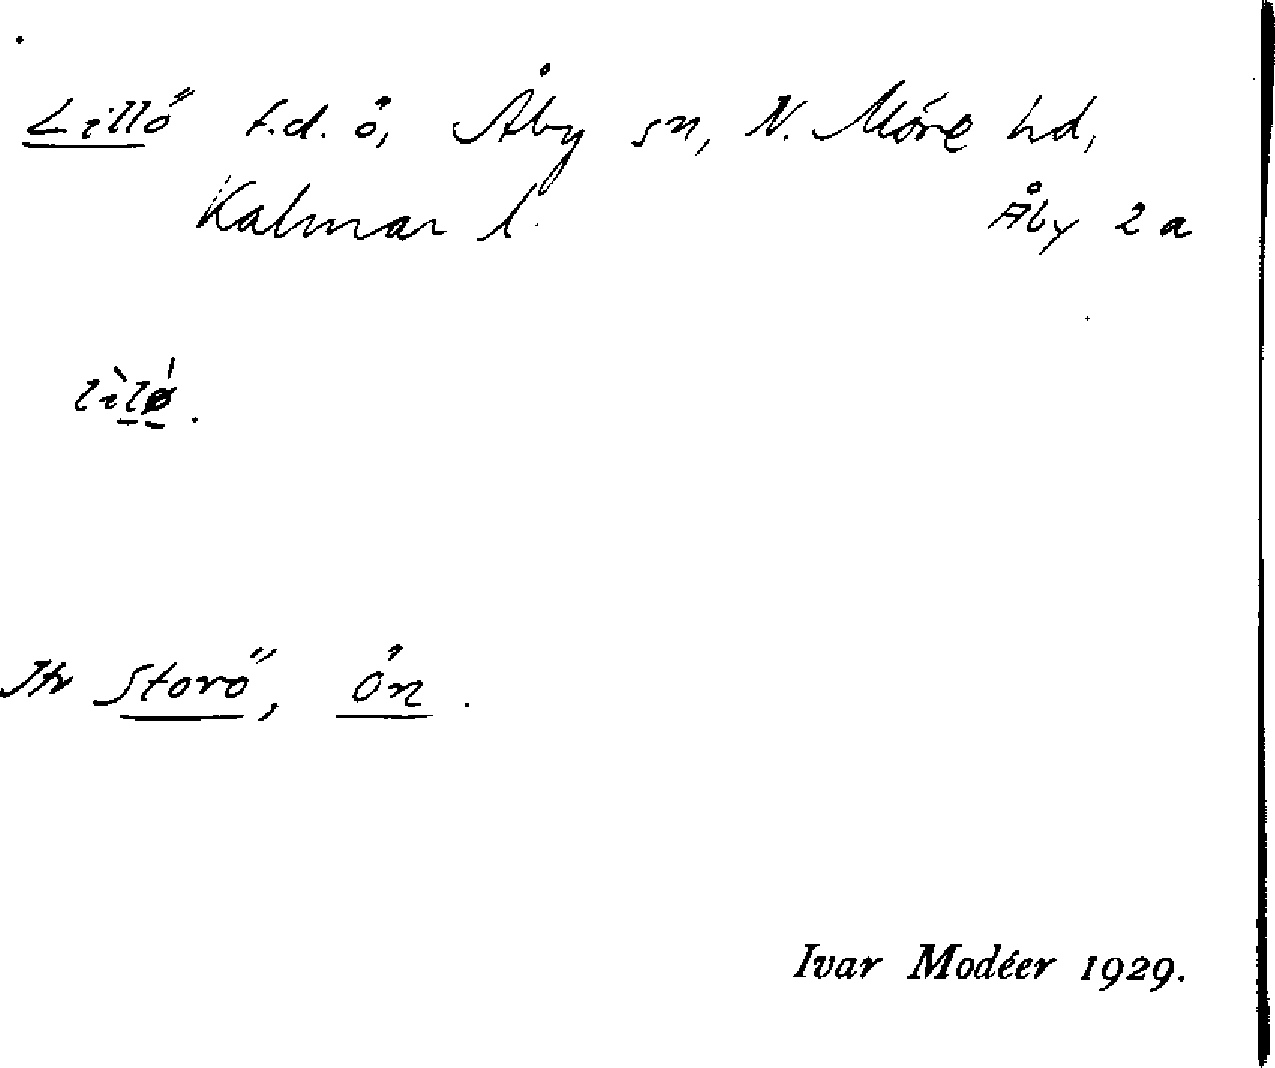 Lillö f.d. ö, Åby sn, N. Möre hd,
Kalmar l. Åby 2 a
lìlø̀.
Jfr Storö, Ön.
Ivar Modéer 1929.